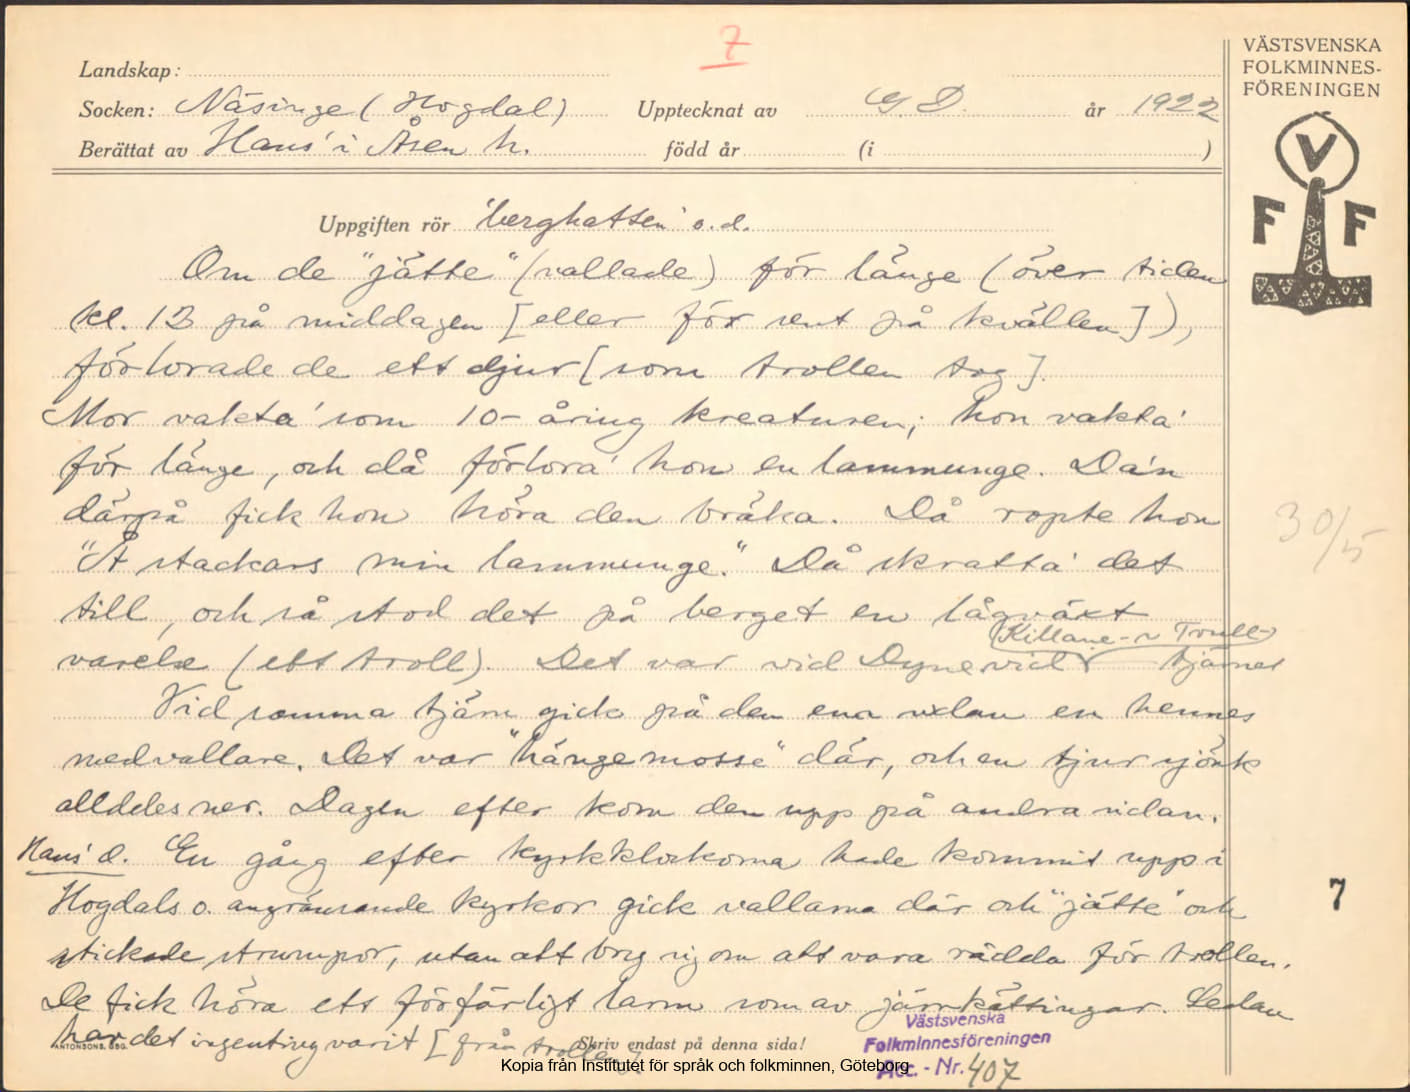 7
VÄSTSVENSKA
FOLKMINNES-
FÖRENINGEN
V
F F
Landskap:
Socken: Näsinge (Hogdal) Upptecknat av G. D. år 1922
Berättat av Hans' i Åsen h. född år (i )
Uppgiften rör 'berghatten' o.d.
Om de "jätte" (vallade) för länge (över tiden
kl. 12 på middagen [eller för sent på kvällen]),
förlorade de ett djur [som trollen tog].
Mor vakta' som 10-åring kreaturen; hon vakta'
för länge, och då förlora' hon en lammunge. Da'n
därpå fick hon höra den bräka. Då ropte hon
"Å stackars min lammunge." Då skratta' det
till, och så stod det på berget en lågväxt
Killane- v Trull-
varelse (ett troll). Det var vid Dyne vid tjärnet
Vid samma tjärn gick på den ena sidan en hennes
medvallare. Det var "hängemosse" där, och en tjur sjönk
alldeles ner. Dagen efter kom den upp på andra sidan.
Hans' d. En gång efter kyrkklockorna hade kommit upp i
Hogdals o. angränsande kyrkor gick vallarna där och "jätte" och
stickade strumpor, utan att bry sig om att vara rädda för trollen.
De fick höra ett förfärligt larm som av järnkättingar. Sedan
har det ingenting varit [från trollen]
30/5
7
ANTONSONS, GBG.
Skriv endast på denna sida!
Västsvenska
Folkminnesföreningen
Acc. - Nr. 407
Kopia från Institutet för språk och folkminnen, Göteborg